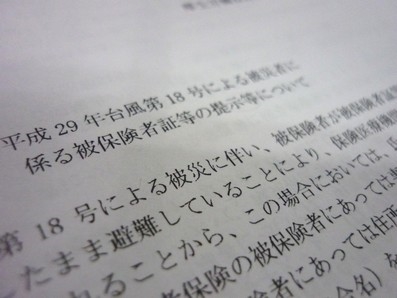 平成29年台風第18号による被災者に
係る被保険者証等の提示等について
第18号による被災に伴い、被保険者が被保険者証
たまま避難していることにより、保険医療機関
れることから、この場合においては、
者保険の被保険者にあっては
険者にあっては住所